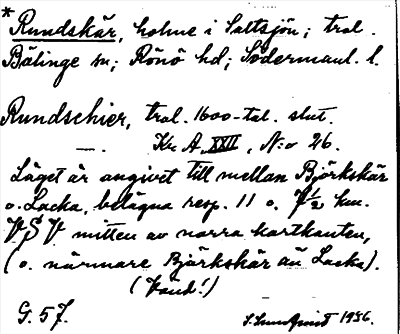 * Rundskär, holme i Saltsjön; trol.
Bälinge sn; Rönö hd; Södermanl. l.
Rundschier, trol. 1600-tal. slut.
—.. Kr. A. XXII, N:o 26.
Läget är angivet till mellan Björkskär
o. Lacka, belägna resp. 11 o. 7½ km.
VSV mitten av norra kartkanten,
(o. närmare Björkskär än Lacka).
(Vänd!)
G. 57. 1936.